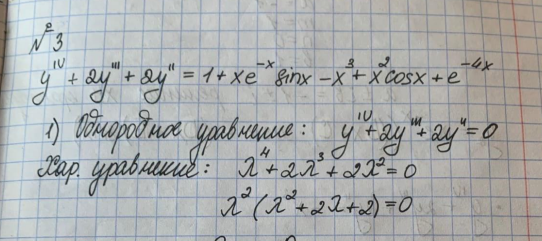 №3
y^IV + 2y''' + 2y'' = 1 + xe^-x sinx - x^3 + x^2 cosx + e^-4x
1) Однородное уравнение: y^IV + 2y''' + 2y'' = 0
Хар. уравнение: λ^4 + 2λ^3 + 2λ^2 = 0
λ^2 (λ^2 + 2λ + 2) = 0